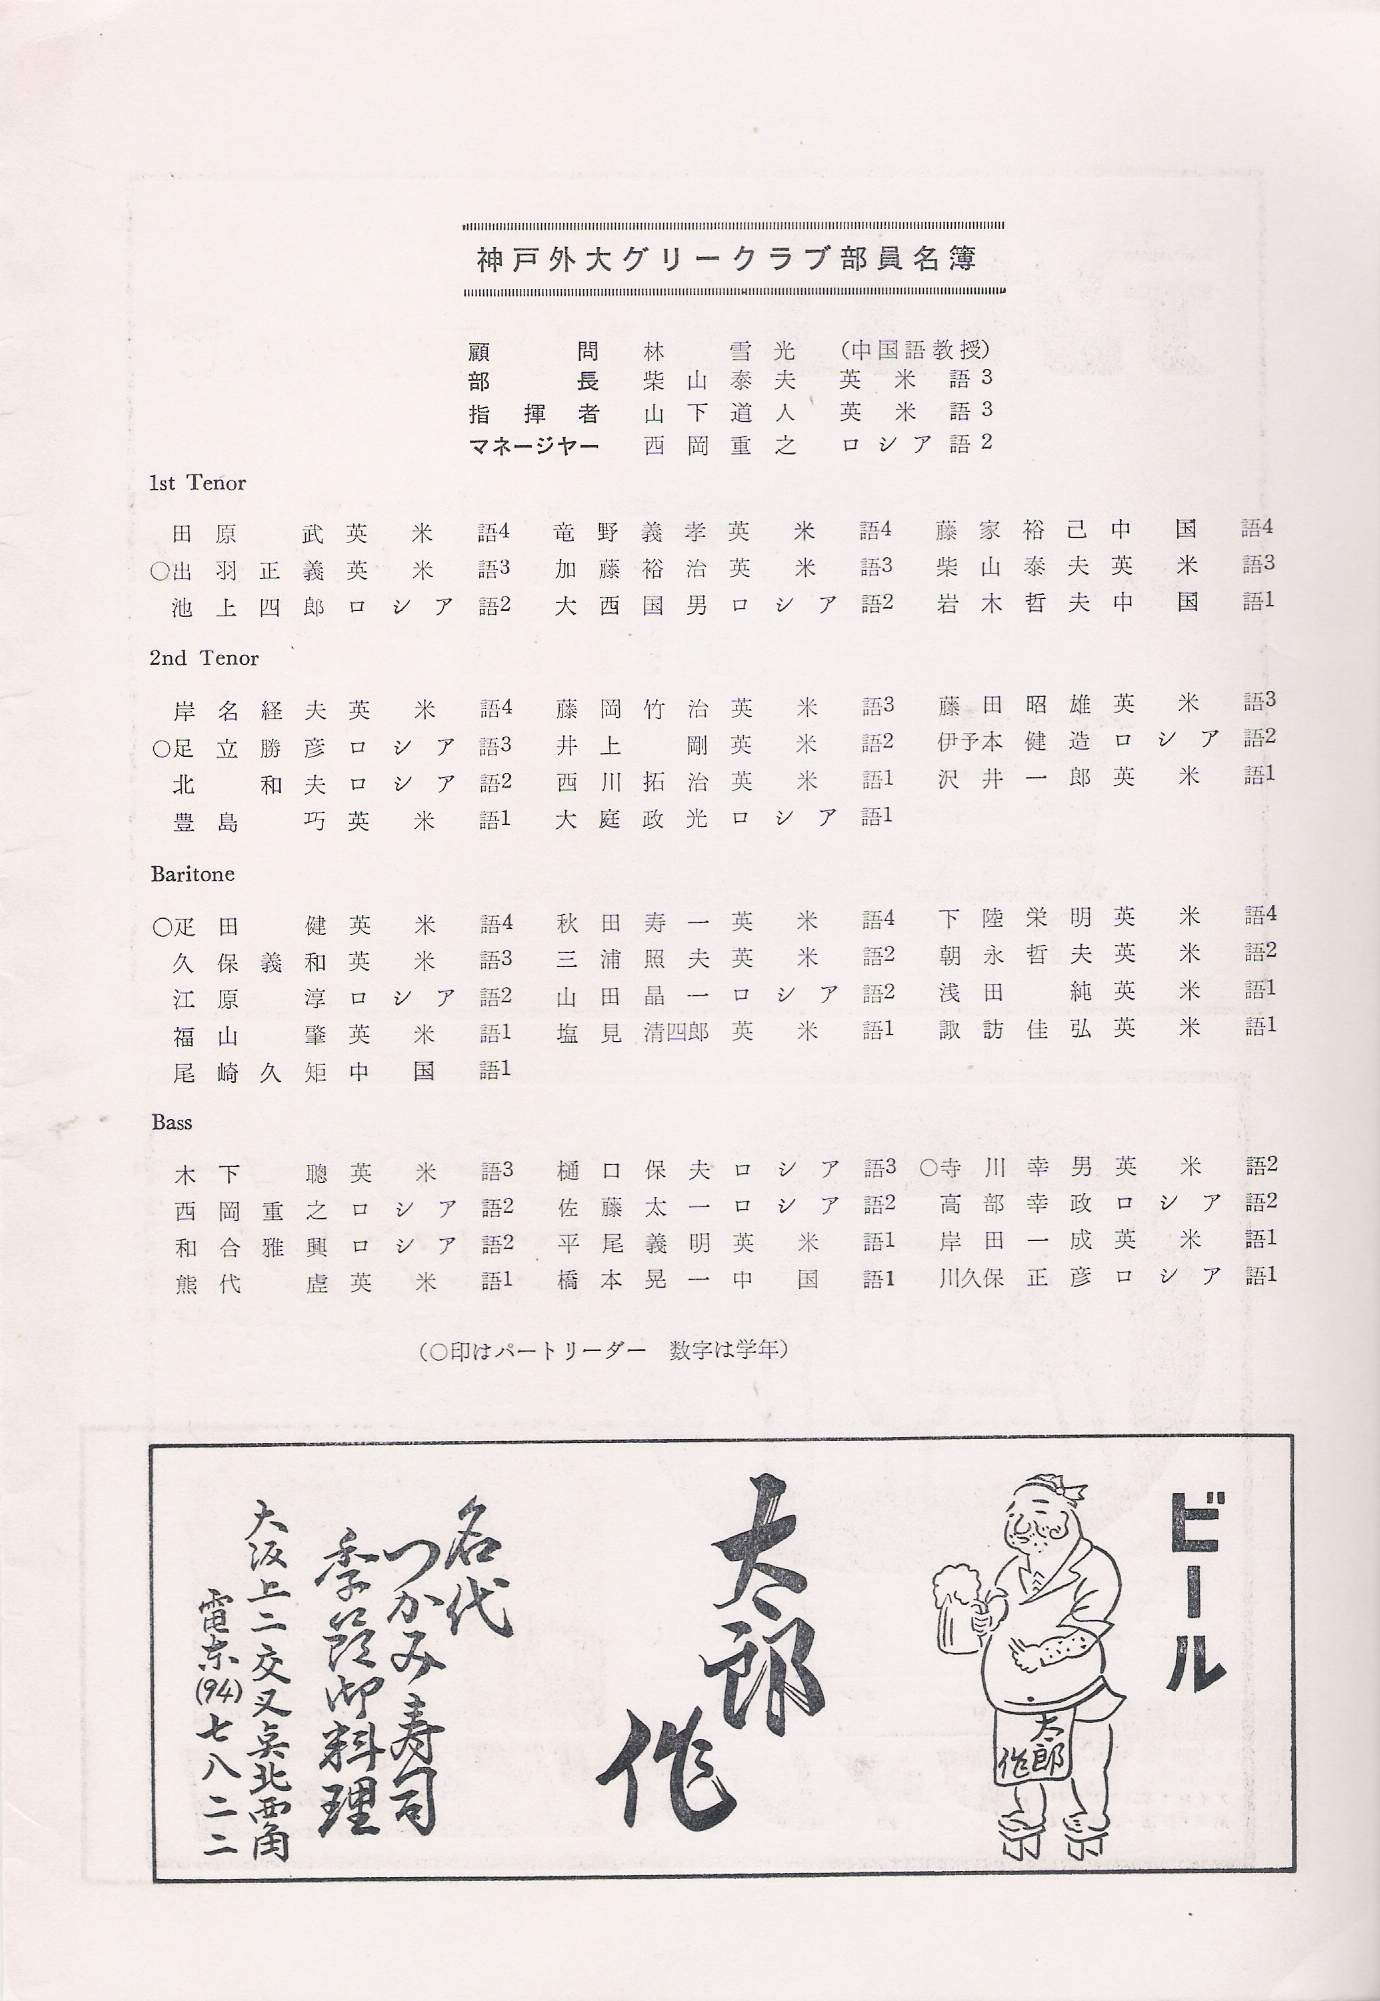 神戸外大グリークラブ部員名簿
顧問 林雪光 (中国語教授)
部長 柴山泰夫 英米語3
指揮者 山下道人 英米語3
マネージャー 西岡重之 ロシア語2
1st Tenor
田原武英米語4 竜野義孝英米語4 藤家裕己中国語4
○出羽正義英米語3 加藤裕治英米語3 柴山泰夫英米語3
池上四郎ロシア語2 大西国男ロシア語2 岩木哲夫中国語1
2nd Tenor
岸名経夫英米語4 藤岡竹治英米語3 藤田昭雄英米語3
○足立勝彦ロシア語3 井上剛英米語2 伊予本健造ロシア語2
北和夫ロシア語2 西川拓治英米語1 沢井一郎英米語1
豊島巧英米語1 大庭政光ロシア語1
Baritone
○疋田健英米語4 秋田寿一英米語4 下陸栄明英米語4
久保義和英米語3 三浦照夫英米語2 朝永哲夫英米語2
江原淳ロシア語2 山田晶一ロシア語2 浅田純英米語1
福山肇英米語1 塩見清四郎英米語1 諏訪佳弘英米語1
尾崎久矩中国語1
Bass
木下聰英米語3 樋口保夫ロシア語3 ○寺川幸男英米語2
西岡重之ロシア語2 佐藤太一ロシア語2 高部幸政ロシア語2
和合雅興ロシア語2 平尾義明英米語1 岸田一成英米語1
熊代虔英米語1 橋本晃一中国語1 川久保正彦ロシア語1
(○印はパートリーダー 数字は学年)
ビール
太郎
作
太郎
作
名代
つかみ寿司
季節御料理
大阪上二交叉点北西角
電東(94)七八二二